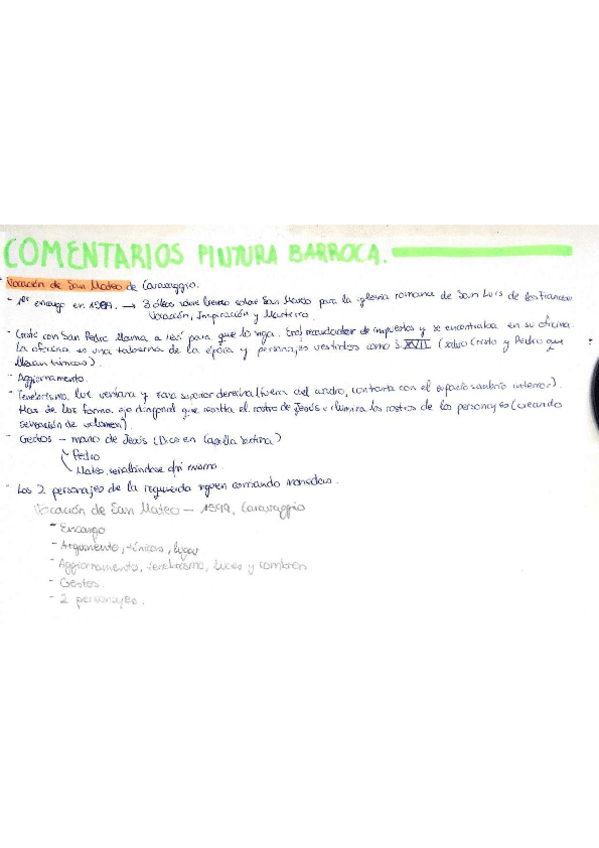 COMENTARIOS PINTURA BARROCA.
Vocación de San Mateo de Caravaggio.
- 1er encargo en 1599. → 3 óleos sobre lienzo sobre San Mateo para la iglesia romana de San Luis de los Franceses
Vocación, Inspiración y Martirio.
- Cristo con San Pedro llama a Leví para que lo siga. Era recaudador de impuestos y se encontraba en su oficina.
La oficina es una taberna de la época y personajes vestidos como S. XVII (salvo Cristo y Pedro que
llevan túnicas).
- Aggiornamento.
- Tenebrismo, luz ventana y zona superior derecha (fuera del cuadro, contrasta con el espacio sombrío interior).
Haz de luz forma eje diagonal que resalta el rostro de Jesús e ilumina los rostros de los personajes (creando
sensación de volumen).
- Gestos - mano de Jesús (Dios en Capilla Sixtina)
Pedro
Mateo, señalándose a sí mismo.
- Los 2 personajes de la izquierda siguen contando monedas.
Vocación de San Mateo - 1599, Caravaggio
- Encargo
- Argumento, túnicas, lugar
- Aggiornamento, tenebrismo, luces y sombras
- Gestos.
- 2 personajes.